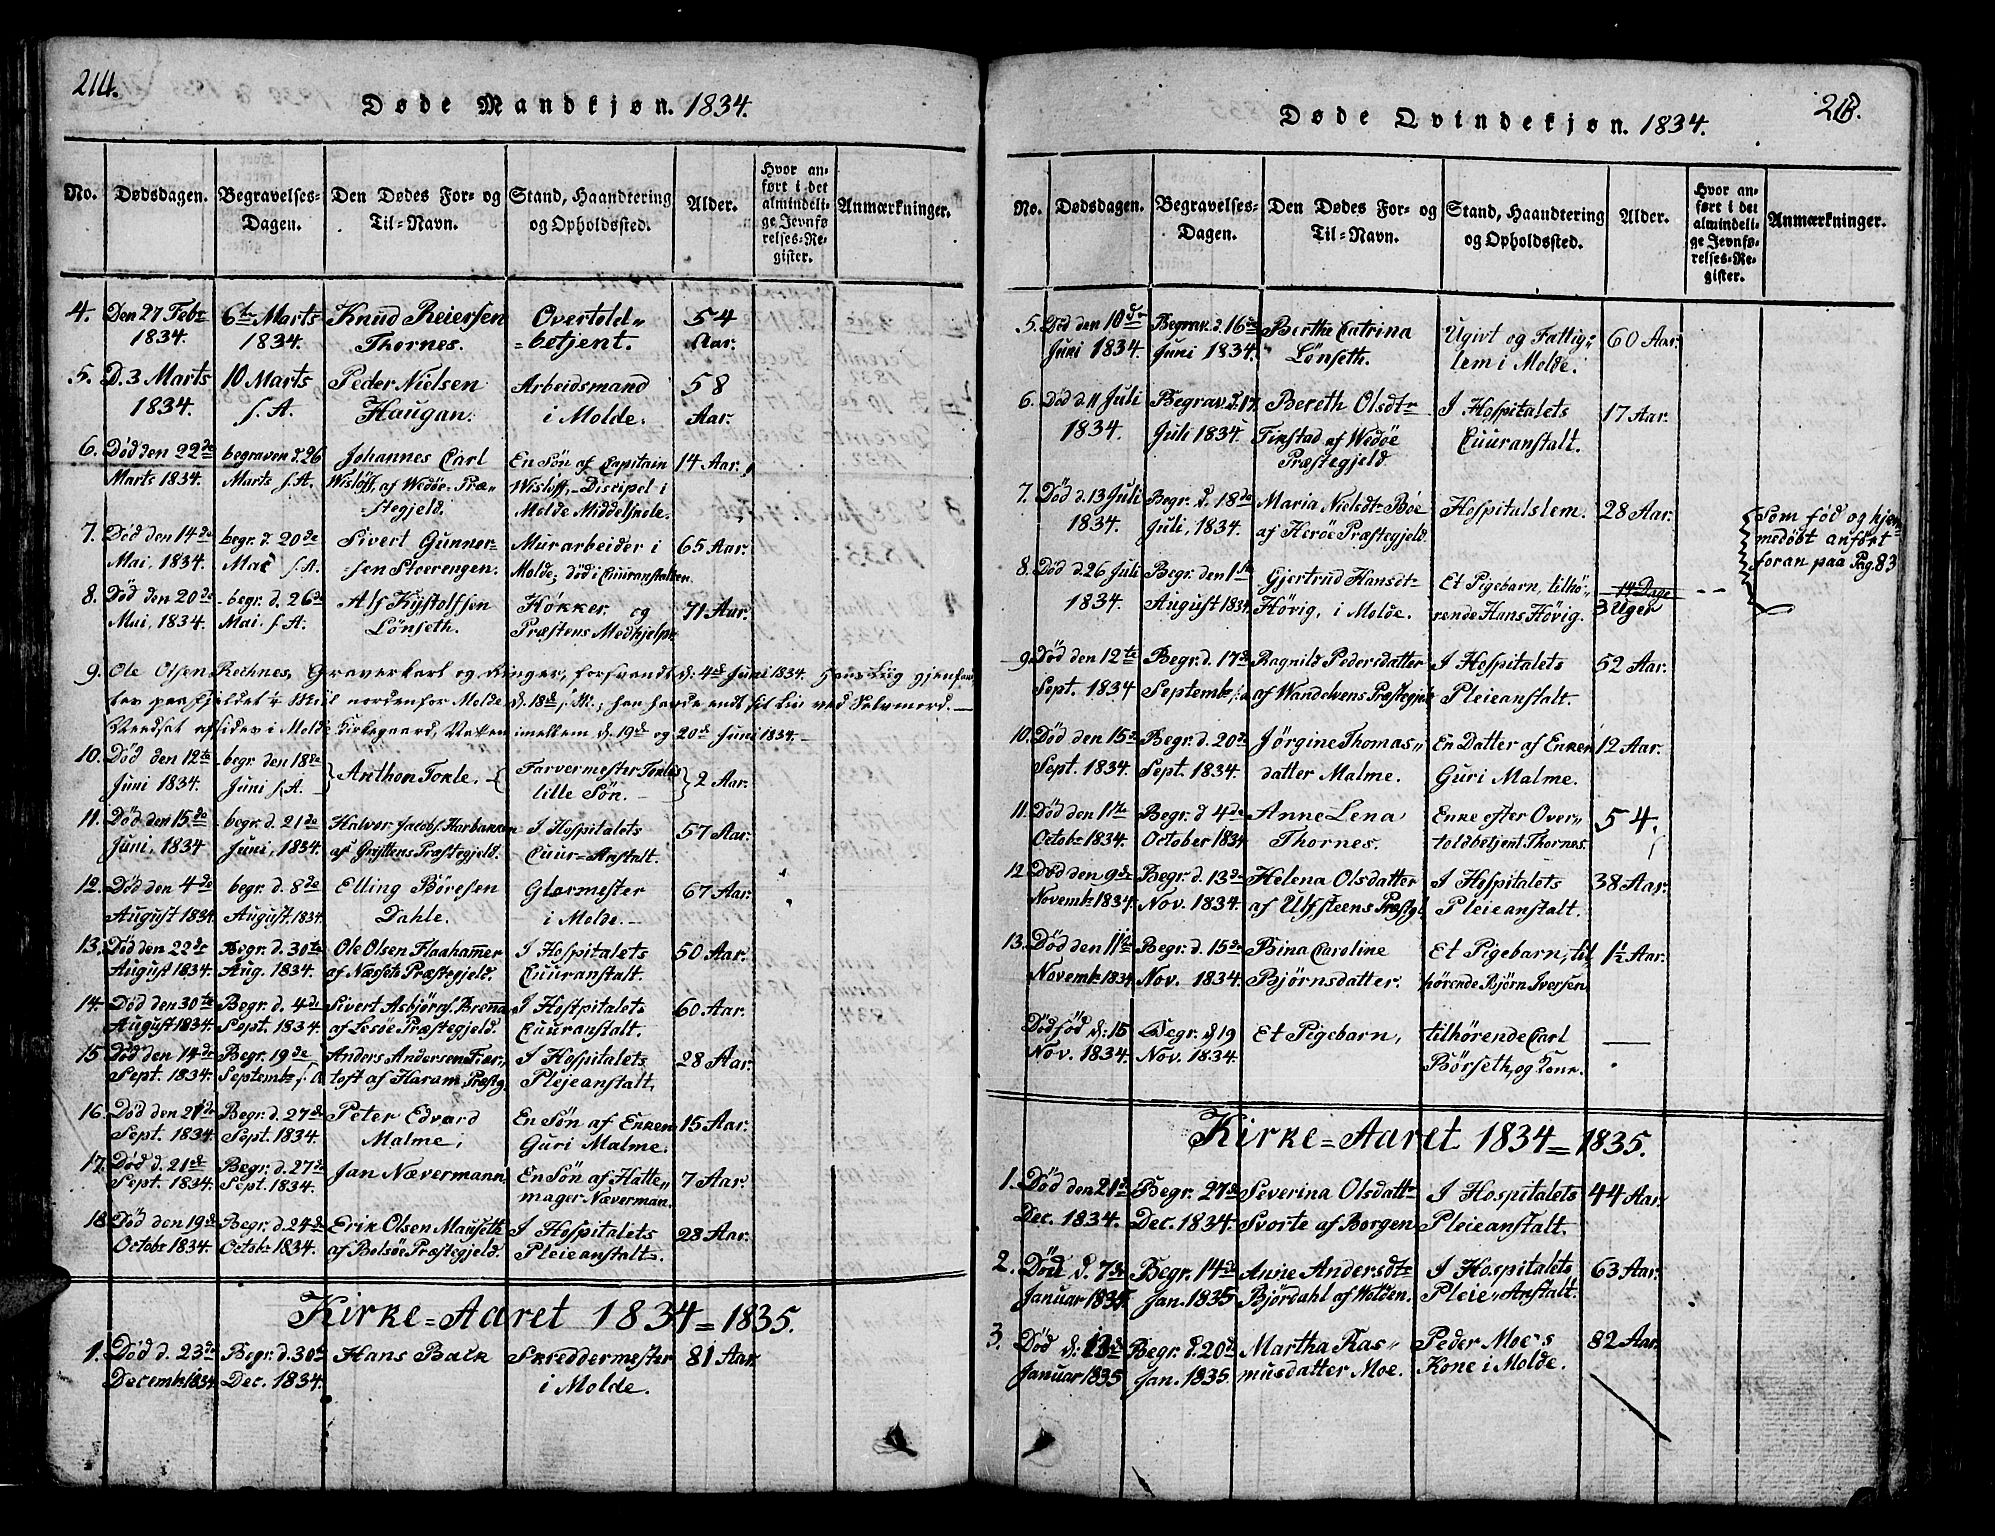 214.
Døde Mandkjøn. 1834.
No.
Dødsdagen.
Begravelses-
Dagen.
Den Dødes For- og
Til-Navn.
Stand, Haandtering
og Opholdssted.
Alder.
Hvor an-
ført i det
almindeli-
ge Jevnfø
relses-Re-
gister.
Anmærkninger.
4. Den 27 Febr 6te Marts Knud Reiersen Overtold- 54
1834. 1834. Thornes. -betjent. Aar.
5. D. 3 Marts 10 Marts Peder Nielsen Arbeidsmand 58
1834. s. A. Haugan. i Molde. Aar.
6. Død den 22de begraven d. 26 Johannes Carl En Søn af Capitain 14 Aar.
Marts 1834. Marts s. A. Wisløff, af Wedøe-Præ- Wisløff, -Discipel i
-stegjeld. Molde Middelskole.
7. Død den 14de begr. d. 20de Sivert Gunner- Murarbeider i 65 Aar.
Mai, 1834. Mai s. A. -sen Stoerengen. Molde, død i Cuuranstalten
8. Død den 20de begr. d. 26de Alf Kystolfsen Køkker og 71 Aar.
Mai, 1834. Mai. s. A. Lønseth. Præstens Medhjelper
9. Ole Olsen Reknes, Graverkarl og Ringer, forsvandt d. 4de Juni 1834. Hans Liig gjenfun-
tes paa Fjeldet ¼ Miil nordenfor Molde d. 18de s. M.; han havde endt sit Liv ved Selvmord.
Nedsat afsides i Molde Kirkegaard, Natten imellem d. 19de og 20de Juni 1834.
10. Død den 12te begr. den 18de Anthon Tokle, Farvermester Tokles 2 Aar.
Juni 1834. Juni s. A. lille Søn.
11. Død den 15de begr. d. 21de Halvor Jacobs. Harbakken I Hospitalets 57 Aar.
Juni, 1834 Juni, 1834. af Gryttens Præstegjeld. Cuur-Anstalt.
12. Død den 4de begr. d. 8de Elling Børesen Glarmester 67 Aar.
August 1834. August. 1834. Dahle. i Molde.
13. Død den 22de Begr. d. 30te Ole Olsen Flaahamer I Hospitalets 50 Aar.
August 1834. Aug. 1834. af Næssets Præstegjeld. Cuuranstalt.
14. Død den 30te Begr. d. 4de Sivert Asbjør af Brenna I Hostpitalets 60 Aar.
August 1834. Sept. 1834. af Lesøe Præstegjeld. Cuuranstalt.
15. Død den 14de Begr. 19de Anders Andersen Fiær- I Hospitalets 28 Aar.
Sept. 1834. Septembr s. A toft af Haram Præstg. Plejeanstalt,
16. Død den 21de Begr. d. 27de Peter Edvard En Søn af Enken 15 Aar.
Sept. 1834. Sept. 1834. Malme, Guri Malme.
17. Død d. 21de Begr. d. 27de Jan Nævermann En Søn af Hatte- 7 Aar.
Sept. 1834. Sept. 1834. mager Næverman.
18. Død den 19de Begr. d. 24de Erik Olsen Mauseth I Hospitalets 28 Aar.
Octobr 1834. Octobr 1834. af Bolsøe Præstegjeld. Pleieanstalt.
Kirke-Aaret 1834-1835.
1. Død d. 23de Begr. d. 30te Hans Balk Skreddermester 81 Aar
Decembr 1834. Dec. 1834. i Molde.
Døde Qvindekjøn. 1834.
No.
Dødsdagen.
Begravelses-
Dagen.
Den Dødes For- og
Til-Navn.
Stand, Haandtering
og Opholdssted.
Alder.
Hvor an-
ført i det
almindeli-
ge Jevnfø-
relses-Re-
gister.
Anmærkninger.
5. Død den 10de Begrav. d. 16de Berthe Catrina Ugivt og Fattig- 60 Aar.
Juni 1834. Juni 1834. Lønseth. lem i Molde.
6. Død d. 11 Juli Begrav. d. 17 Bereth Olsdtr I Hospitalets 17 Aar.
1834. Juli 1834. Finstad af Wedøe Cuuranstalt.
Præstegjeld.
7. Død d. 13 Juli Begr. d. 18de Maria Nielsdtr Bøe Hospitalslem. 28 Aar.
1834. Juli, 1834. af Herøe Præstegjeld.
Som fød og hjem-
medøbt anført
foran paa Pag. 83
8. Død d. 26 Juli Begr. den 1ste Gjertrud Hansdtr Et Pigebarn, tilhø- 14 Dage
1834. August 1834. Høvig, i Molde. rende Hans Høvig. 3 Uger
9. Død den 12te Begr. d. 17de Ragnild Pedersdatter I Hospitalets 52 Aar.
Sept. 1834 Septembr s. a. af Wandelvens Præstegjeld Pleieanstalt.
10. Død den 15de Begr. d. 20de Jørgine Thomas- En Datter af Enken 12 Aar.
Sept. 1834. Sept. 1834. datter Malme. Guri Malme.
11. Død den 1ste Begr. d 4de Anne Lena Enke efter Over- 54.
Octobr 1834. October 1834 Thornes. toldbetjent Thornes.
12. Død den 9de Begr. d. 13de Helena Olsdatter I Hospitalets 38 Aar.
Novembr 1834. Nov. 1834. af Ulfsteens Præstgj. Pleieanstalt.
13. Død den 11te Begr. d. 15de Bina Caroline Et Pigebarn, til- 1½ Aar.
Novembr 1834. Nov. 1834. Bjørnsdatter. hørende Bjørn Iversen.
Dødfød d. 15 Begr. d 19 Et Pigebarn, tilhørende Carl
Nov. 1834. Nov. 1834. Børseth, og Kone.
Kirke-Aaret 1834-1835.
1. Død den 21de Begr. 27de Severina Olsdattr I Hospitalets 44 Aar.
Dec. 1834. Dec. 1834. Svorte af Borgen Pleieanstalt.
2. Død d. 7de Begr. 14de Anne Andersdtr I Hospitalets 63 Aar.
Januar 1835. Jan. 1835 Bjørdahl af Wolden. Pleie-Anstalt.
3. Død d. 13de Begr. d. 20de Martha Ras- Peder Moe's 82 Aar.
Januar 1835 Jan. 1835. musdatter Moe. Kone i Molde.